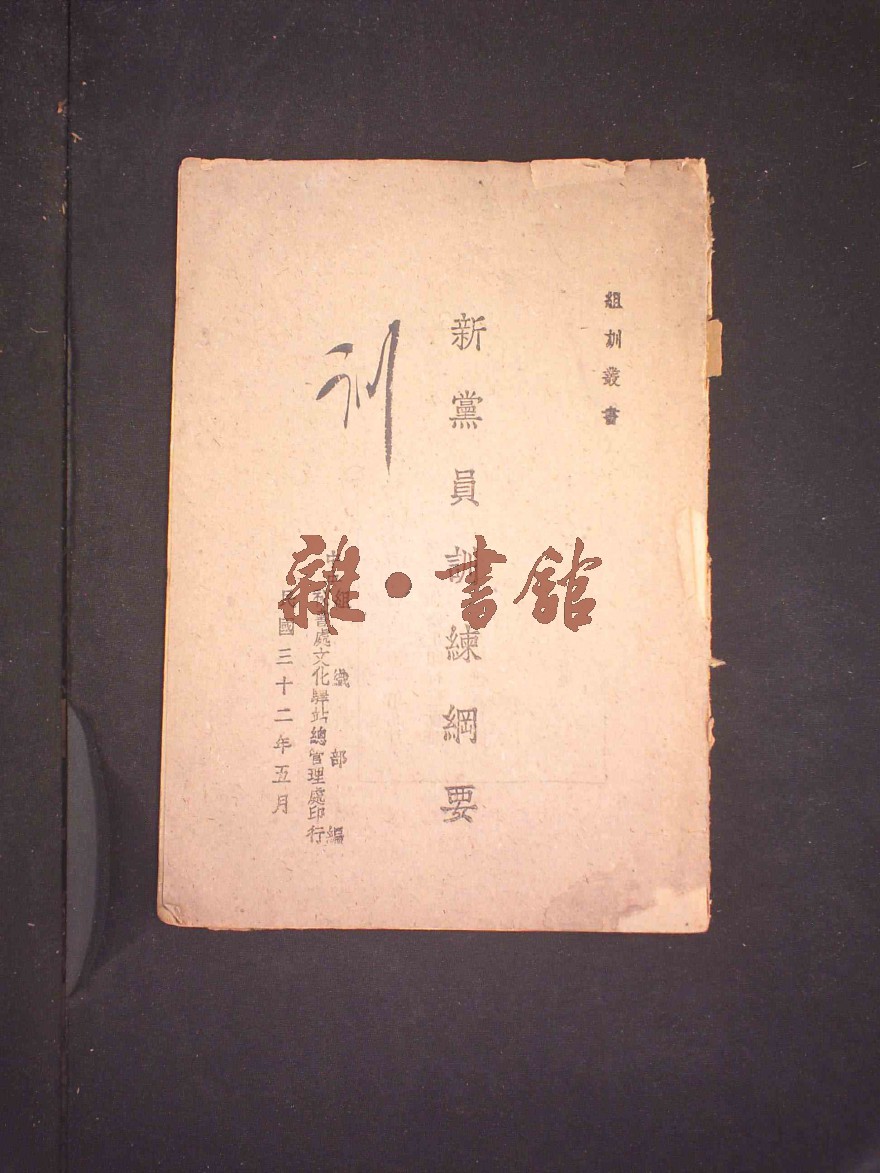 組訓叢書
新黨員訓練綱要
訓
組織部編
書處文化驛站總管理處印行
民國三十二年五月
雜·書館